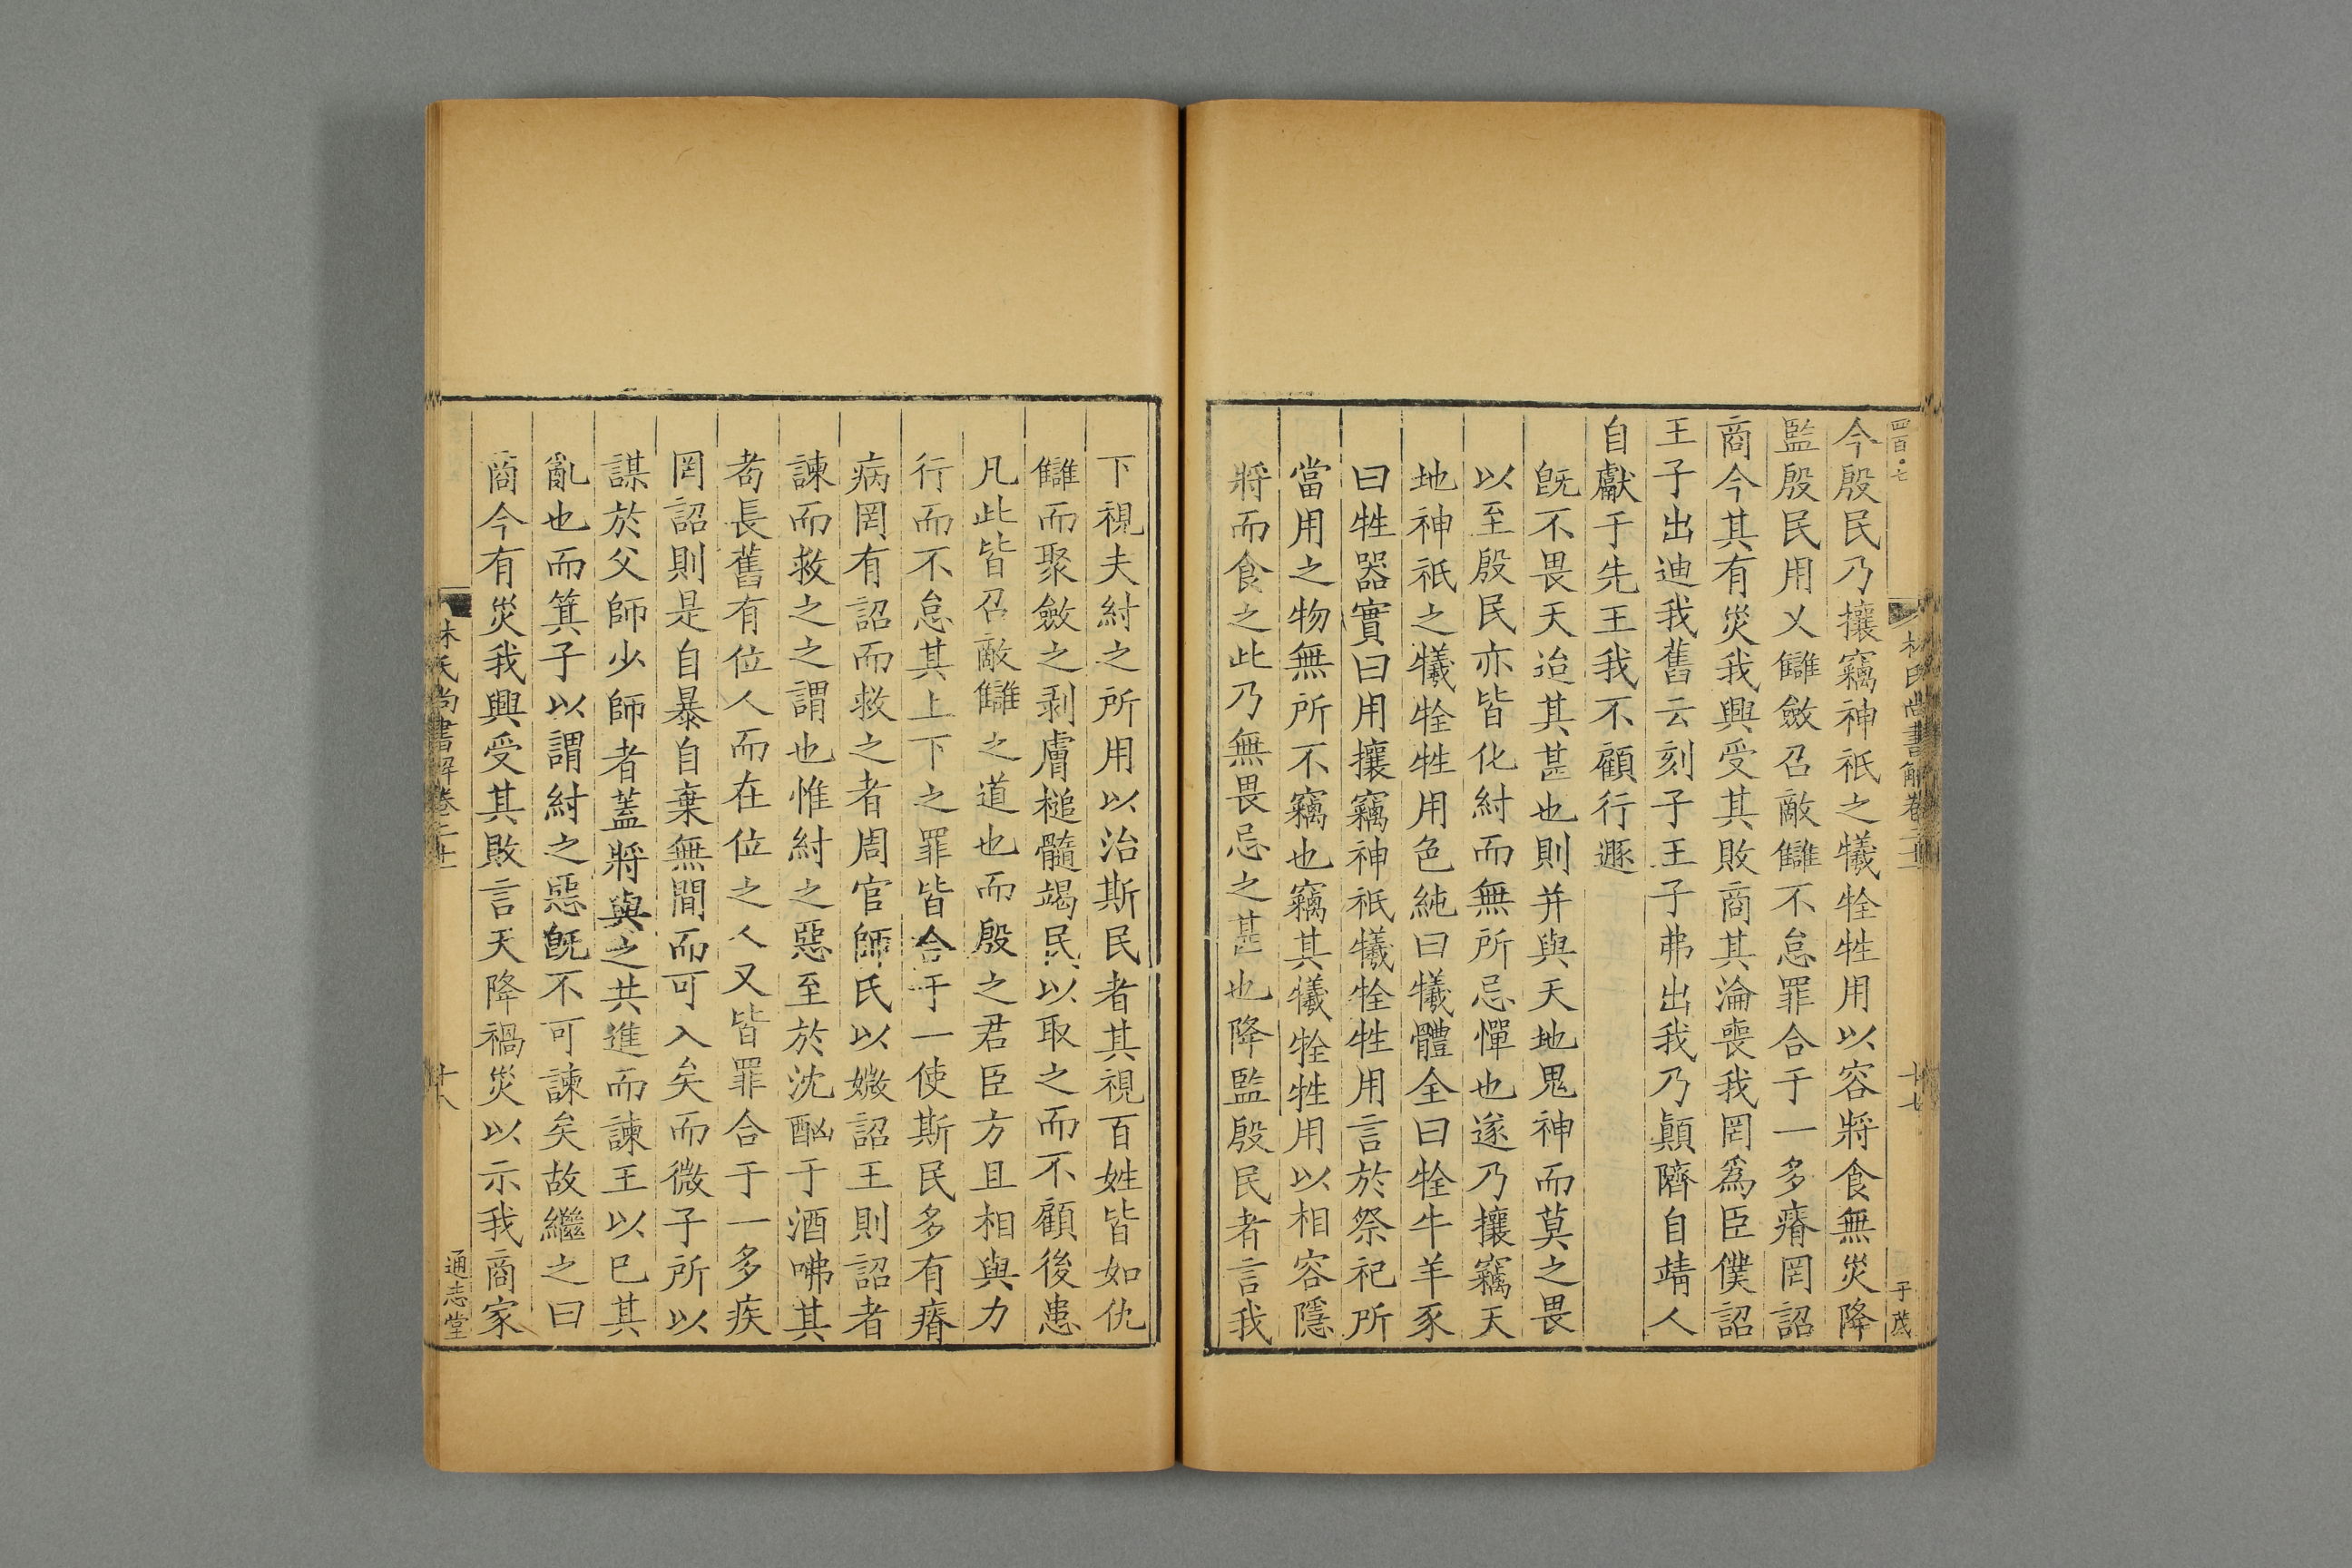 四百七
林氏尚書解卷
十七
于茂
今殷民乃攘竊神祇之犧牷牲用以容將食無災降
監殷民用乂讎斂召敵讎不怠罪合于一多瘠罔詔
商今其有災我興受其敗商其淪喪我罔爲臣僕詔
王子出迪我舊云刻子王子弗出我乃顚隮自靖人
自獻于先王我不顧行遯
旣不畏天迨其甚也則并與天地鬼神而莫之畏
以至殷民亦皆化紂而無所忌憚也遂乃攘竊天
地神祇之犧牷牲用色純曰犧體全曰牷牛羊豕
曰牲器實曰用攘竊神祇犧牷牲用言於祭祀所
當用之物無所不竊也竊其犧牷牲用以相容隱
將而食之此乃無畏忌之甚也降監殷民者言我
下視夫紂之所用以治斯民者其視百姓皆如仇
讎而聚斂之剥膚槌髓竭民以取之而不顧後患
凡此皆召敵讎之道也而殷之君臣方且相與力
行而不怠其上下之罪皆合于一使斯民多有瘠
病罔有詔而救之者周官師氏以媺詔王則詔者
諫而救之之謂也惟紂之惡至於沈酗于酒咈其
耇長舊有位人而在位之人又皆罪合于一多疾
罔詔則是自暴自棄無間而可入矣而微子所以
謀於父師少師者蓋將與之共進而諫王以巳其
亂也而箕子以謂紂之惡旣不可諫矣故繼之曰
商今有災我興受其敗言天降禍災以示我商家
林氏尚書解卷二十一
十八
通志堂